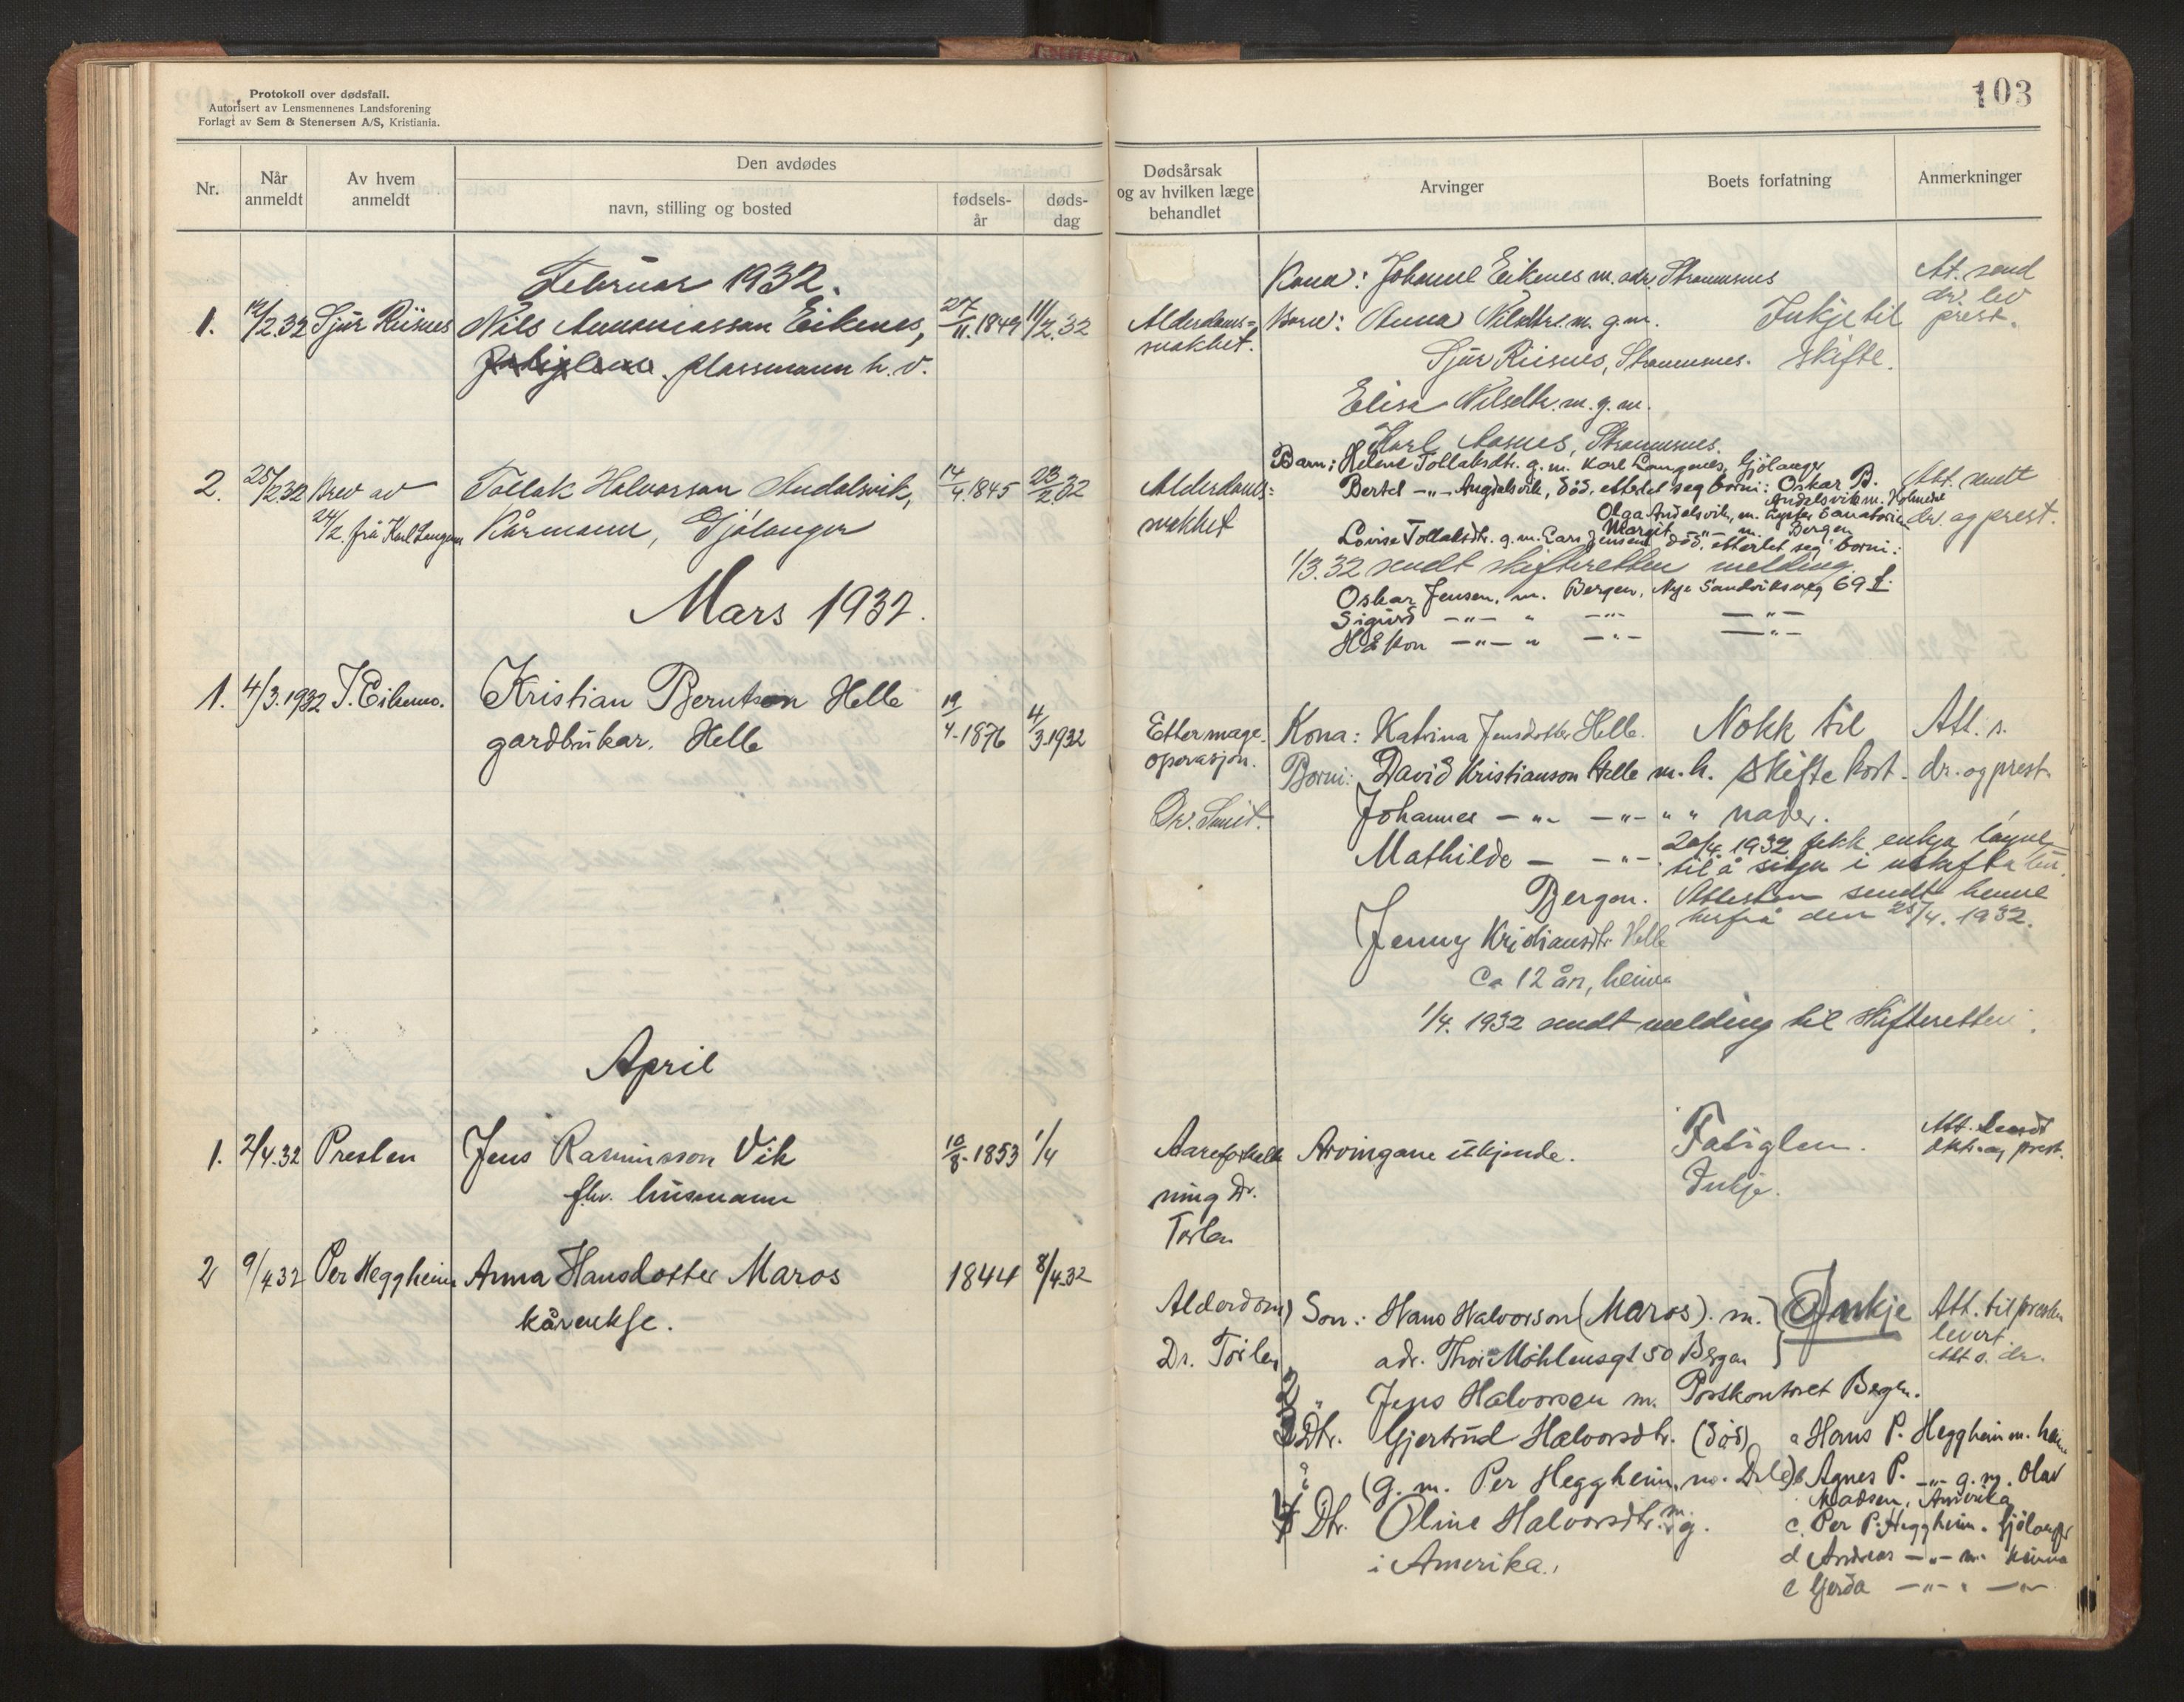 Protokoll over dødsfall.
Autorisert av Lensmennenes Landsforening
Forlagt av Sem & Stenersen A/S, Kristiania.
Nr.
Når anmeldt
Av hvem anmeldt
Den avdødes
navn, stilling og bosted
fødsels-år
døds-dag
Februar 1932.
1. 12/2.32 Sjur Riisnes Nils Eikenes, 27/11.1849 11/2.32
plassmann h. v.
2. 25/2.32 Brev av Tollak Halvorson Andalsvik, 14/4.1845 23/2.32
24/2. frå Karl Kårmann, Gjölanger
Mars 1932.
1. 4/3.1932 J. Eikemo. Kristian Berntson Helle 19/4.1876 4/3.1932
gardbrukar. Helle
April
1. 2/4.32 Presten Jens Rasmusson Vik 10/8.1853 1/4
fhv. husmann
2 9/4.32 Per Heggheim Anna Hansdotter Maros 1844 8/4.32
kårenkje.
103
Dødsårsak
og av hvilken læge
behandlet
Arvinger
Boets forfatning
Anmerkninger
Kona: Johanne Eikenes m. adr. Straumsnes At. send
dr. lev
Alderdoms= Born: Anna Nilsdtr. m. g.m. Inkje til prest.
svakhet. Sjur Riisnes, Straumsnes. skifte.
Elisa Nilsdtr. m. g. m.
Karl Aasnes, Straumsnes.
Barn: Helene Tollaksdtr. g. m. Karl Langenes, Gjölanger
Alderdoms= Bertel -"- Angdalsvik, död, etterlet seg borni: Oskar B. Att. sendt
Andalsvik m. Holmedal
svakhet Olga Andalsvik, m. Lyster Sanatorie dr. og prest.
Margit -"- m. Bergen
Lovise Tollaksdtr. g. m. Lars Jensen död, etterlet seg borni:
1/3.32 sendt skifteretten melding.
Oskar Jensen, m. Bergen, Nye Sandviksveg 69 I.
Sigurd -"- " -"- -"-
Håkon -"- " -"- -"-
Etter mage- Kona: Katrina Jensdotter Helle. Nokk til Att. s.
operasjon. Borni: David Kristianson Helle m. h. skiftekost- dr. og prest.
Dr. Smit. Johannes -"- -"- " " nader.
Mathilde - -"- 20/4 1932 fekk enkja løyve
til å sitja i uskifta bu.
Bergen. Attesten sendt henne
herfrå den 25/4. 1932.
Jenny Kristiansdtr Helle
Ca 12 år, heime
1/4. 1932 sendt melding til Skifteretten.
Aareforkalk Arvingane ukjende. Fatiglem. Att. sendt
og prest.
ning Dr. Inkje.
Torlen
Alderdom, Son: Hans Halvorson (Maros). m. } Inkje Att. til presten
levert.
Dr. Torlen adr. Thor Möhlensgt 50 Bergen Att s. dr.
2 " Jens Halvorsen m. Postkontoret Bergen.
3 Dtr. Gjertrud Halvorsdtr. (död) a Hans P. Heggheim m. heime
(g. m. Per Heggheim, m. Dale) b Agnes P. -"- g. m. Olav
Madsen, Amerika
4 Dtr. Oline Halvorsdtr. m. g. c. Per P. Heggheim. Gjölanger
i Amerika. d Andreas -"- m. heime
e Gerda -"- " -"-